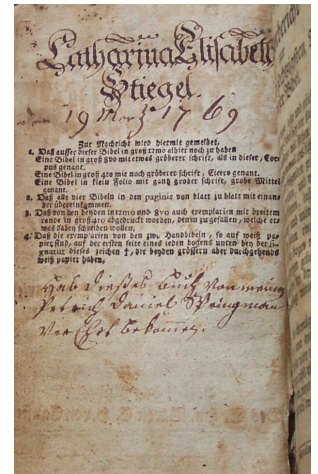 Catharina Elisabeth
Stiegel.
19 Mertz 1769
Zur Nachricht wird hiermit gemeldet,
1. Daß ausser dieser Bibel in groß 12mo alhier noch zu haben
Eine Bibel in groß 8vo mit etwas gröberer schrift, als in dieser, Cor-
pus genant.
Eine Bibel in groß 4to mit noch gröberer schrift, Cicero genant.
Eine Bibel in klein Folio mit gantz grober schrift, grobe Mittel
genant.
2. Daß alle vier Bibeln in den paginis von blatt zu blatt mit einan-
der übereinkommen.
3. Daß von den beyden in 12mo und 8vo auch exemplarien mit breitem
rande in groß 4to abgedruckt worden, denen zu gefallen, welche et-
was daben schreiben wollen.
4. Daß die exemplarien von den zw. Handbibeln, so auf weiß pa-
pier sind, auf der ersten seite eines jeden bogens unten bey der Si-
gnatur dieses zeichen †, die beyden grössern aber durchgehends
weiß papier haben.
Hab dießes Buch von
Daniel Springman
bekomen.